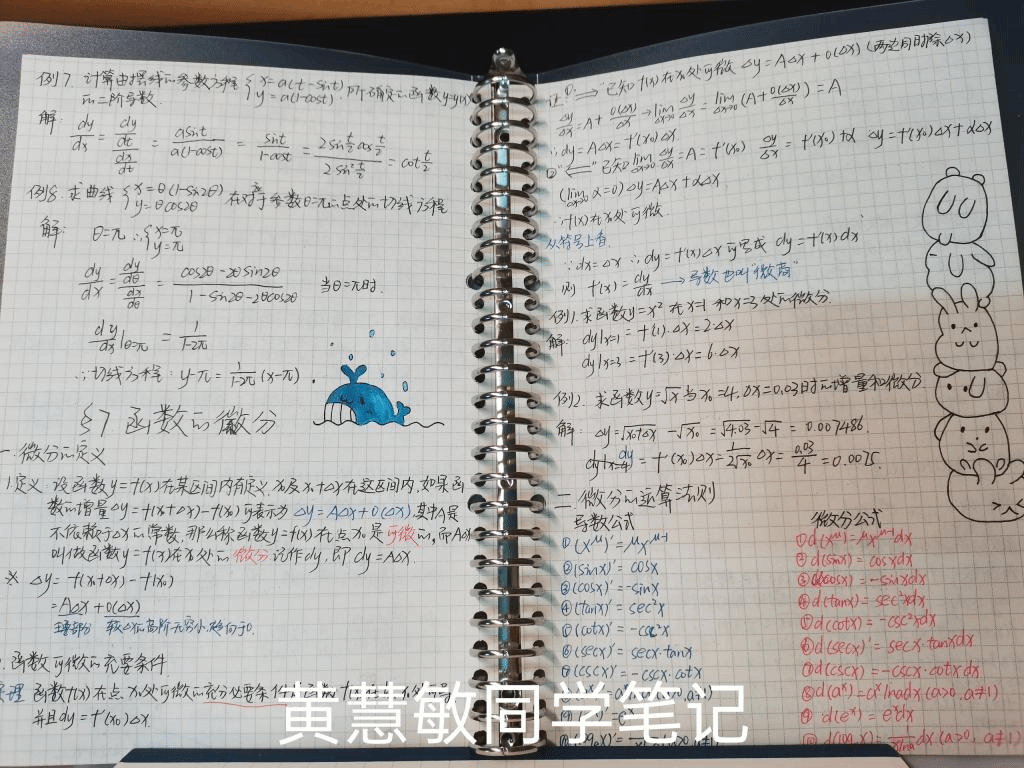 例7. 计算由摆线的参数方程 {x=a(t-sint) y=a(1-cost) 所确定的函数y=y(x)
的二阶导数.
解: dy/dx = (dy/dt)/(dx/dt) = asint/a(1-cost) = sint/1-cost = 2sin t/2 cos t/2 / 2sin² t/2 = cot t/2
例8. 求曲线 {x=θ(1-sin2θ) y=θcos2θ 在对应于参数θ=π的点处的切线方程
解: θ=π ∴{x=π y=π
dy/dx = (dy/dθ)/(dx/dθ) = cos2θ-2θsin2θ / 1-sin2θ-2θcos2θ 当θ=π时.
dy/dx|θ=π = 1/1-2π
∴切线方程: y-π = 1/1-2π (x-π).
§7 函数的微分
一.微分的定义
1定义: 设函数y=f(x)在某区间内有定义, x₀及x₀+Δx在这区间内, 如果函
数的增量Δy=f(x₀+Δx)-f(x₀)可表示为 Δy=AΔx+o(Δx). 其中A是
不依赖于Δx的常数, 那么称函数y=f(x)在点x₀是可微的, 而AΔx
叫做函数y=f(x)在x₀处的微分 记作dy, 即 dy=AΔx.
※ Δy= f(x₀+Δx)-f(x₀)
=AΔx+o(Δx)
主部分 较Δx的高阶无穷小.趋向于0.
函数可微的充要条件
函数f(x)在点x₀处可微的充分必要条件
并且dy=f'(x₀)Δx.
证: ①"⇒" 已知f(x)在x₀处可微 Δy=AΔx+o(Δx) (两边同时除Δx)
Δy/Δx=A+o(Δx)/Δx → lim Δx→0 Δy/Δx = lim Δx→0 (A+o(Δx)/Δx) = A
∴dy=AΔx=f'(x₀)Δx
②"⇐" 已知 lim Δx→0 Δy/Δx=A=f'(x₀) Δy/Δx = f'(x₀)+α Δy=f'(x₀)Δx+αΔx
(lim Δx→0 α=0) Δy=AΔx+αΔx
∴f(x)在x₀处可微.
从符号上看.
∵dx=Δx ∴dy=f'(x)Δx 可写成 dy=f'(x)dx
则 f'(x)=dy/dx → 导数也叫"微商"
例1. 求函数y=x²在x=1和x=3处的微分.
解: dy|x=1 = f'(1)·Δx=2Δx
dy|x=3 = f'(3)·Δx=6·Δx
例2. 求函数y=√x当x₀=4,Δx=0.03时的增量和微分.
解: Δy=√x₀+Δx -√x₀ =√4.03-√4 = 0.007486.
dy|x=4 = f'(x₀)Δx= 1/2√x₀ Δx = 0.03/4 =0.0075.
二.微分的运算法则
导数公式 微分公式
①(x^μ)'=μx^μ-1 ①d(x^μ)=μx^μ-1dx
②(sinx)'=cosx ②d(sinx)=cosxdx
③(cosx)'=-sinx ③d(cosx)=-sinxdx
④(tanx)'=sec²x ④d(tanx)=sec²xdx
⑤(cotx)'=-csc²x ⑤d(cotx)=-csc²xdx
⑥(secx)'=secx·tanx ⑥d(secx)'=secx·tanxdx
⑦(cscx)'=-cscx·cotx ⑦d(cscx)=-cscx·cotxdx
⑧d(a^x)=a^xlnadx (a>0,a≠1)
⑨d(e^x)=e^xdx
黄慧敏同学笔记